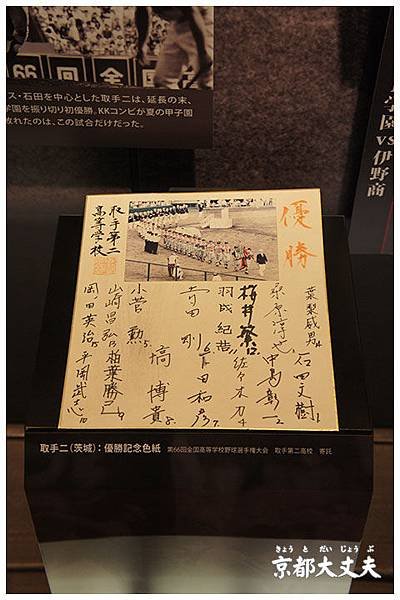 66回全国
ス・石田を中心とした取手二は、延長の末、
学園を振り切り初優勝。KKコンビが夏の甲子園
敗れたのは、この試合だけだった。
園vs伊野商
優勝
取手第二
高等学校
石田文樹
中島彰一
佐々木力
羽成紀哉
吉田剛
下田和彦
塙博貴
小菅勲
柏葉勝己
山崎昌弘
平岡武志
岡田英治
取手二(茨城):優勝記念色紙 第66回全国高等学校野球選手権大会 取手第二高校 寄託
きょうとだいじょうぶ
京都大丈夫